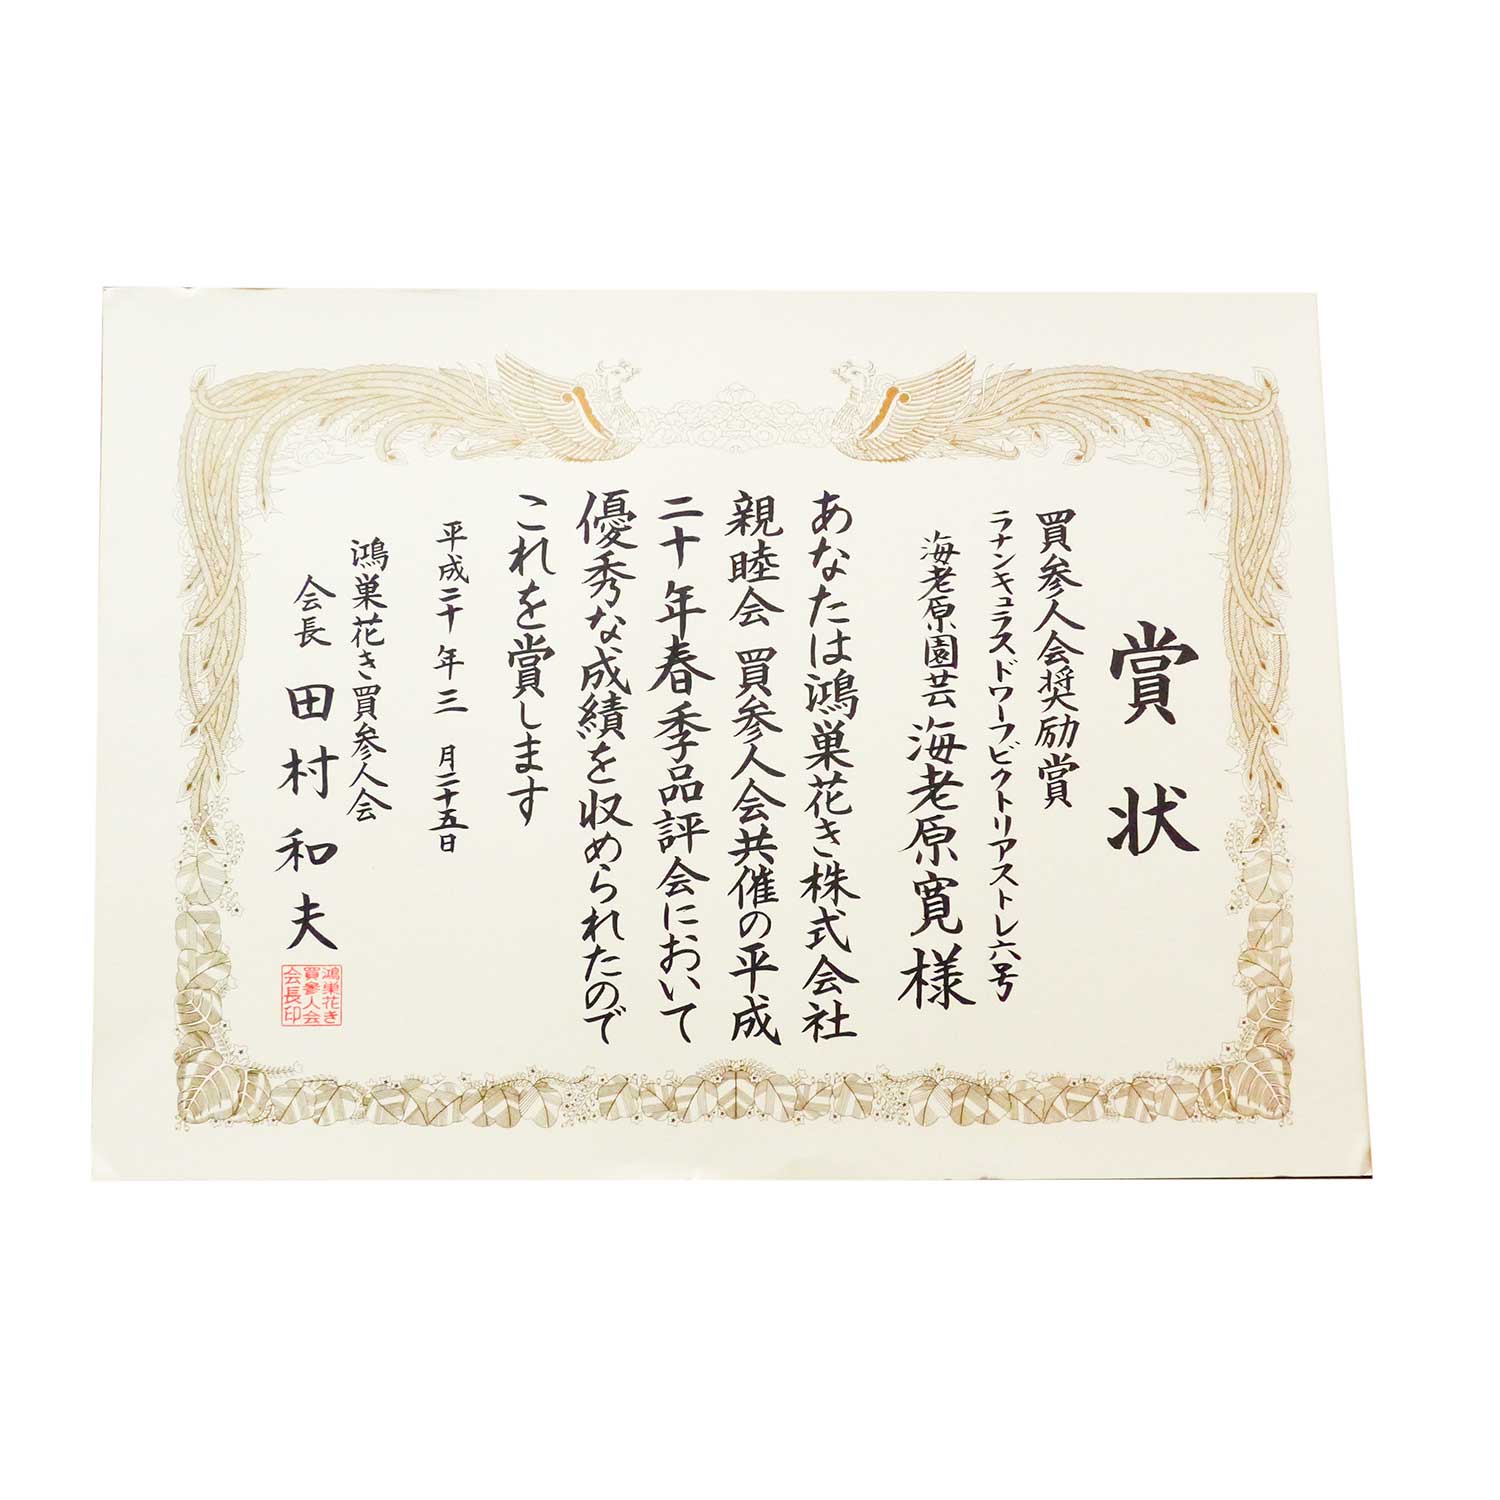 賞状
買参人会奨励賞
ラナンキュラスドワーフビクトリアストレ六号
海老原園芸 海老原寛様
あなたは鴻巣花き株式会社
親睦会 買参人会共催の平成
二十年春季品評会において
優秀な成績を収められたので
これを賞します
平成二十年三月二十五日
鴻巣花き買参人会
会長 田村和夫
鴻巣花き
買参人会
会長印